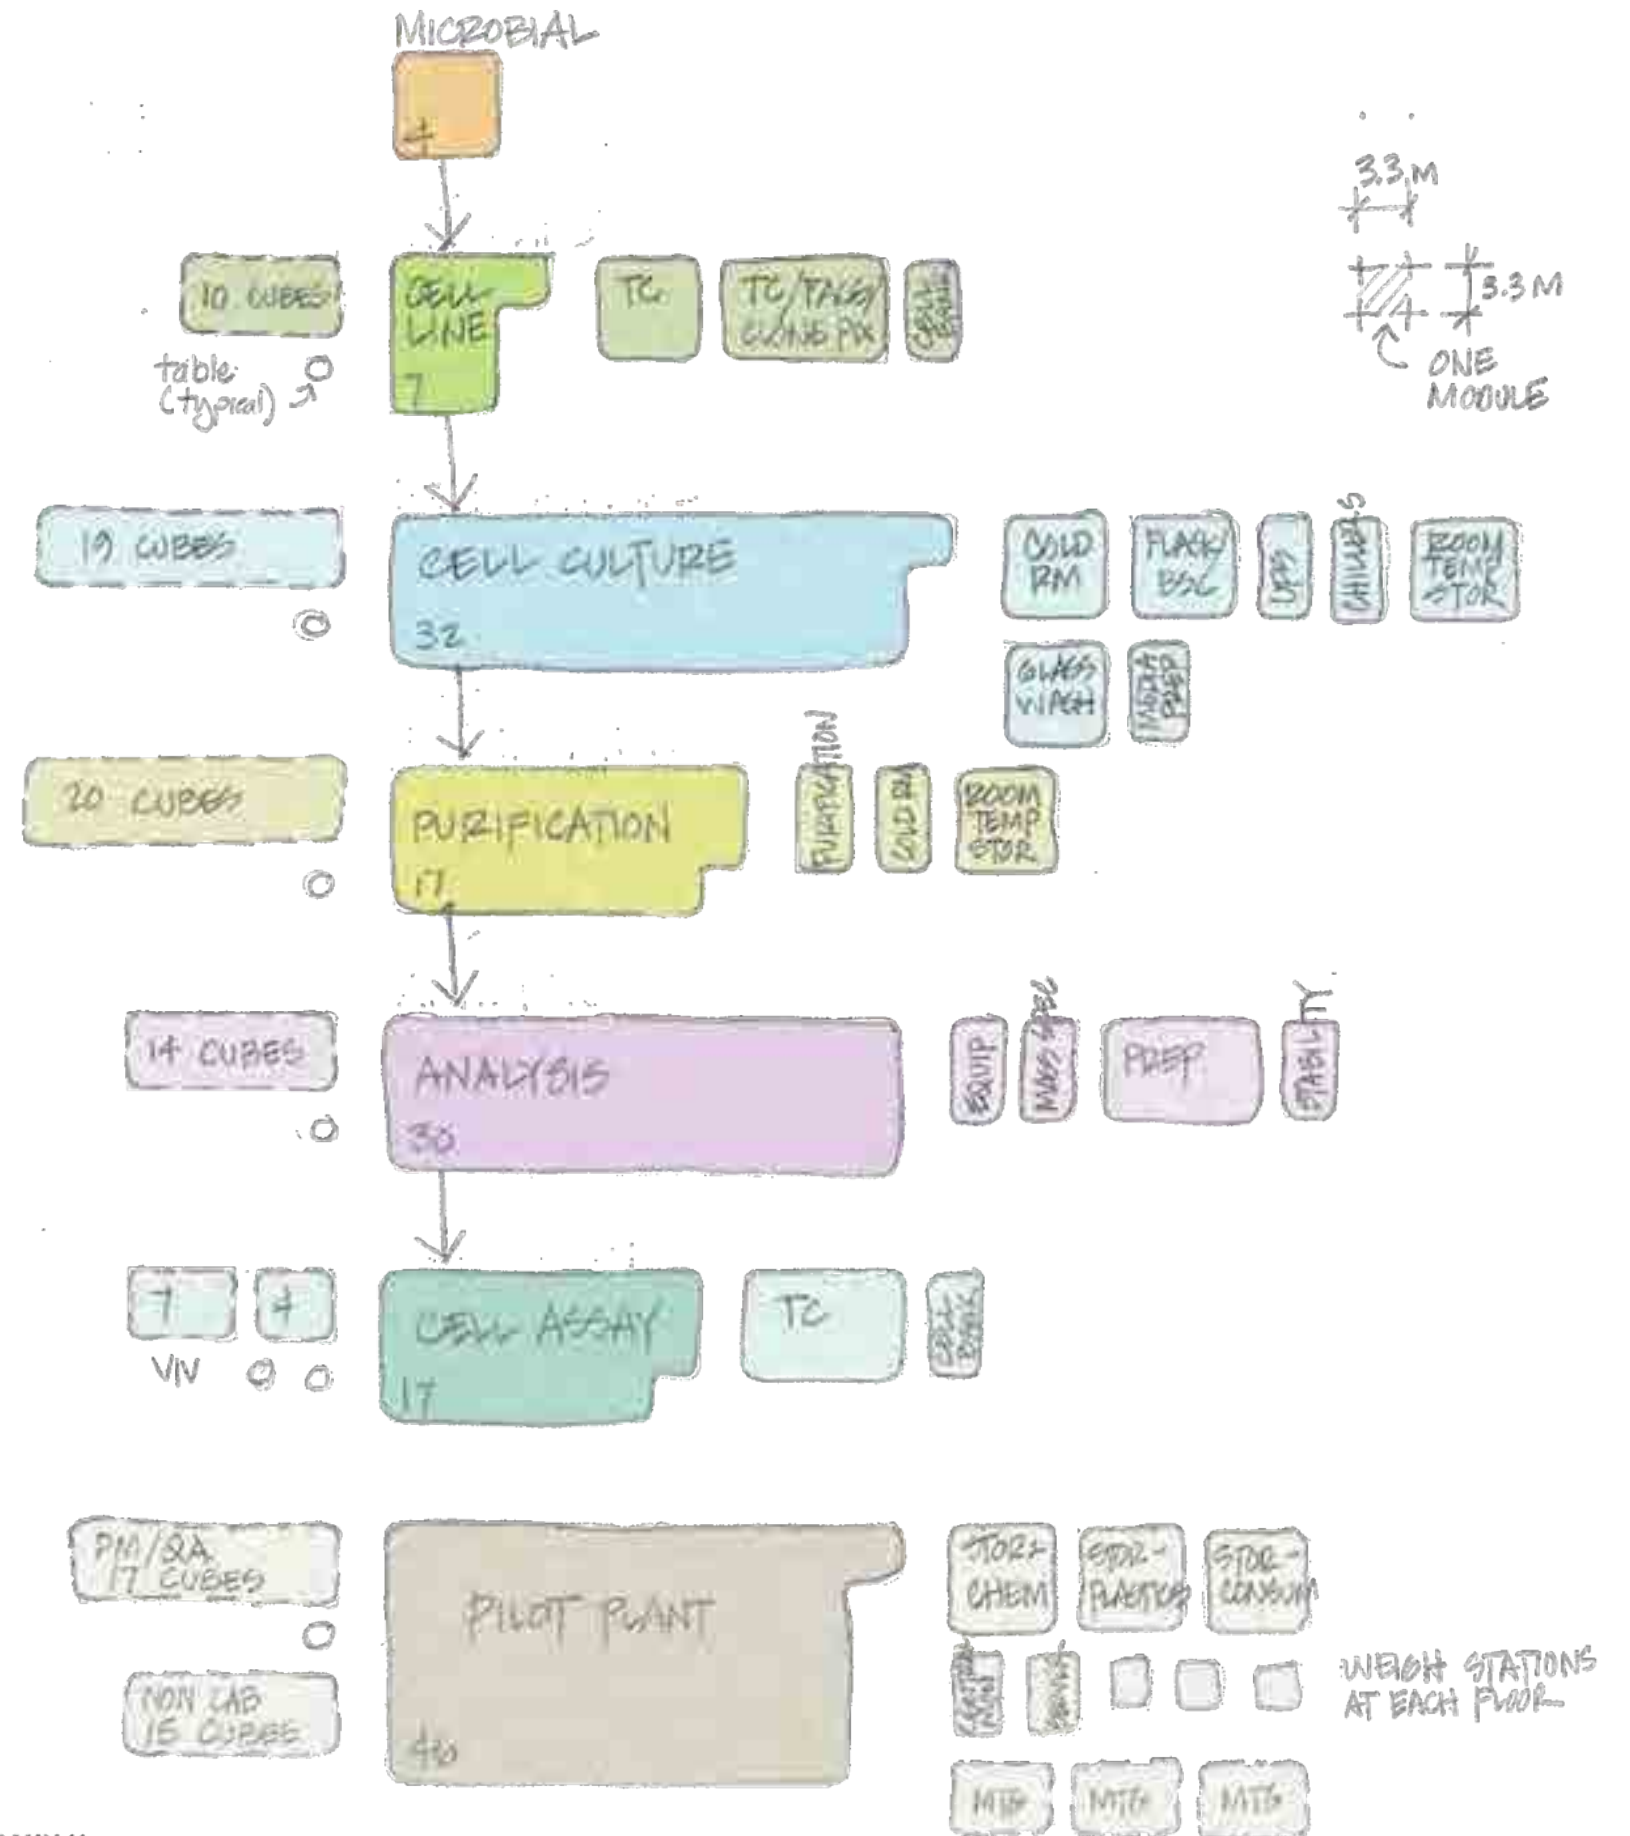 MICROBIAL
4
3.3 M
3.3 M
ONE
MODULE
10 CUBES
table
(typical)
CELL
LINE
7
TC
TC/FACS/
CLONE PIX
CELL
BANK
19 CUBES
CELL CULTURE
32
COLD
RM
FLASK/
BSC
CHILLERS
ROOM
TEMP
STOR
GLASS
WASH
MEDIA
PREP
20 CUBES
PURIFICATION
17
PURIFICATION
COLD RM
ROOM
TEMP
STOR
14 CUBES
ANALYSIS
30
EQUIP
MASS SPEC
PREP
STABILITY
7
4
VIV
CELL ASSAY
17
TC
CELL
BANK
PM/QA
17 CUBES
NON LAB
15 CUBES
PILOT PLANT
40
STOR-
CHEM
STOR-
PLASTICS
STOR-
CONSUM
WEIGH STATIONS
AT EACH FLOOR
MTG
MTG
MTG